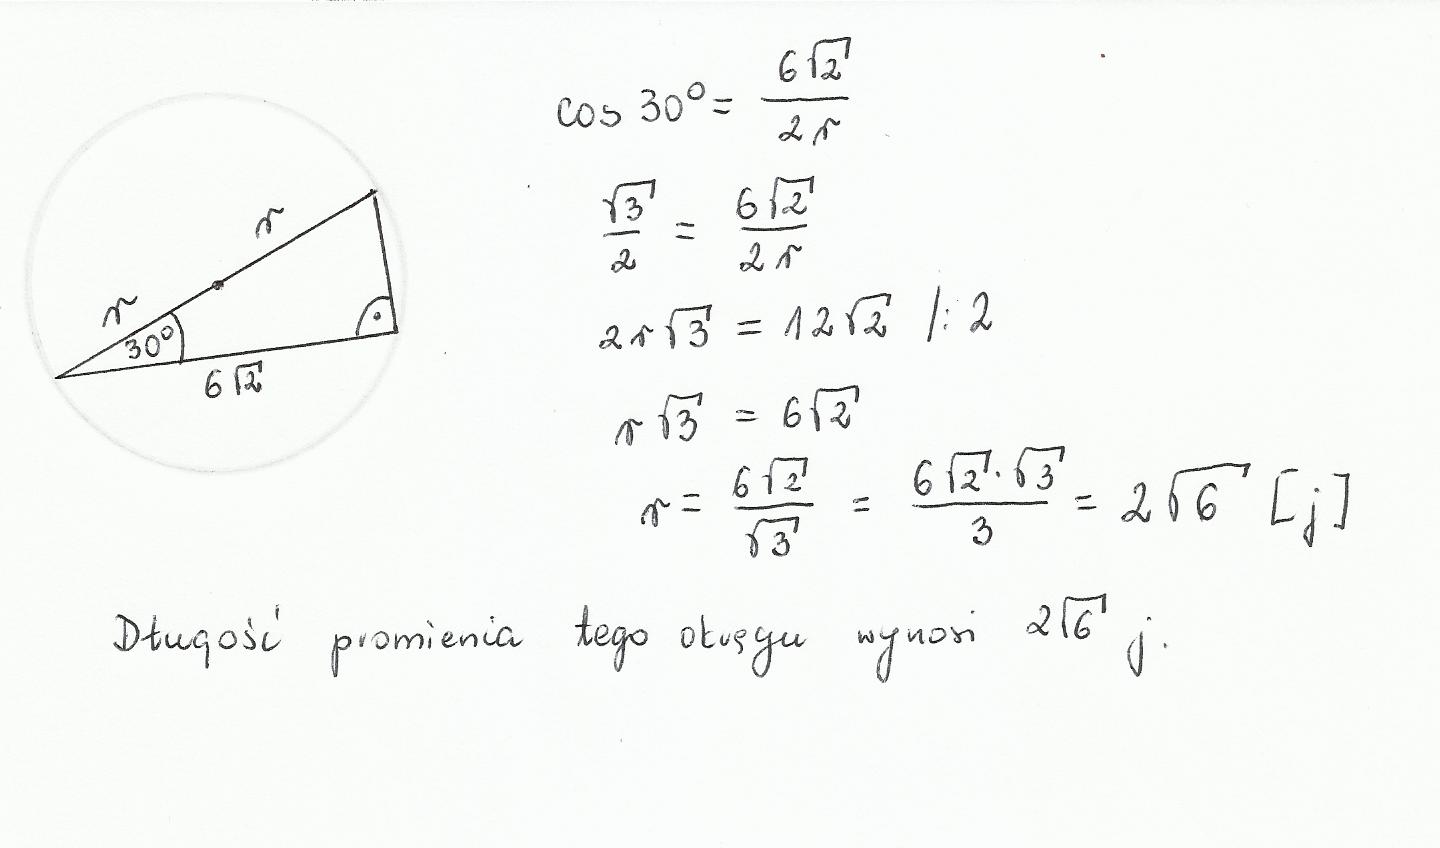 cos 30° = 6√2 / 2r
√3 / 2 = 6√2 / 2r
2r√3 = 12√2 /: 2
r√3 = 6√2
r = 6√2 / √3 = 6√2 · √3 / 3 = 2√6 [j]
r
r
30°
6√2
Długość promienia tego okręgu wynosi 2√6 j.